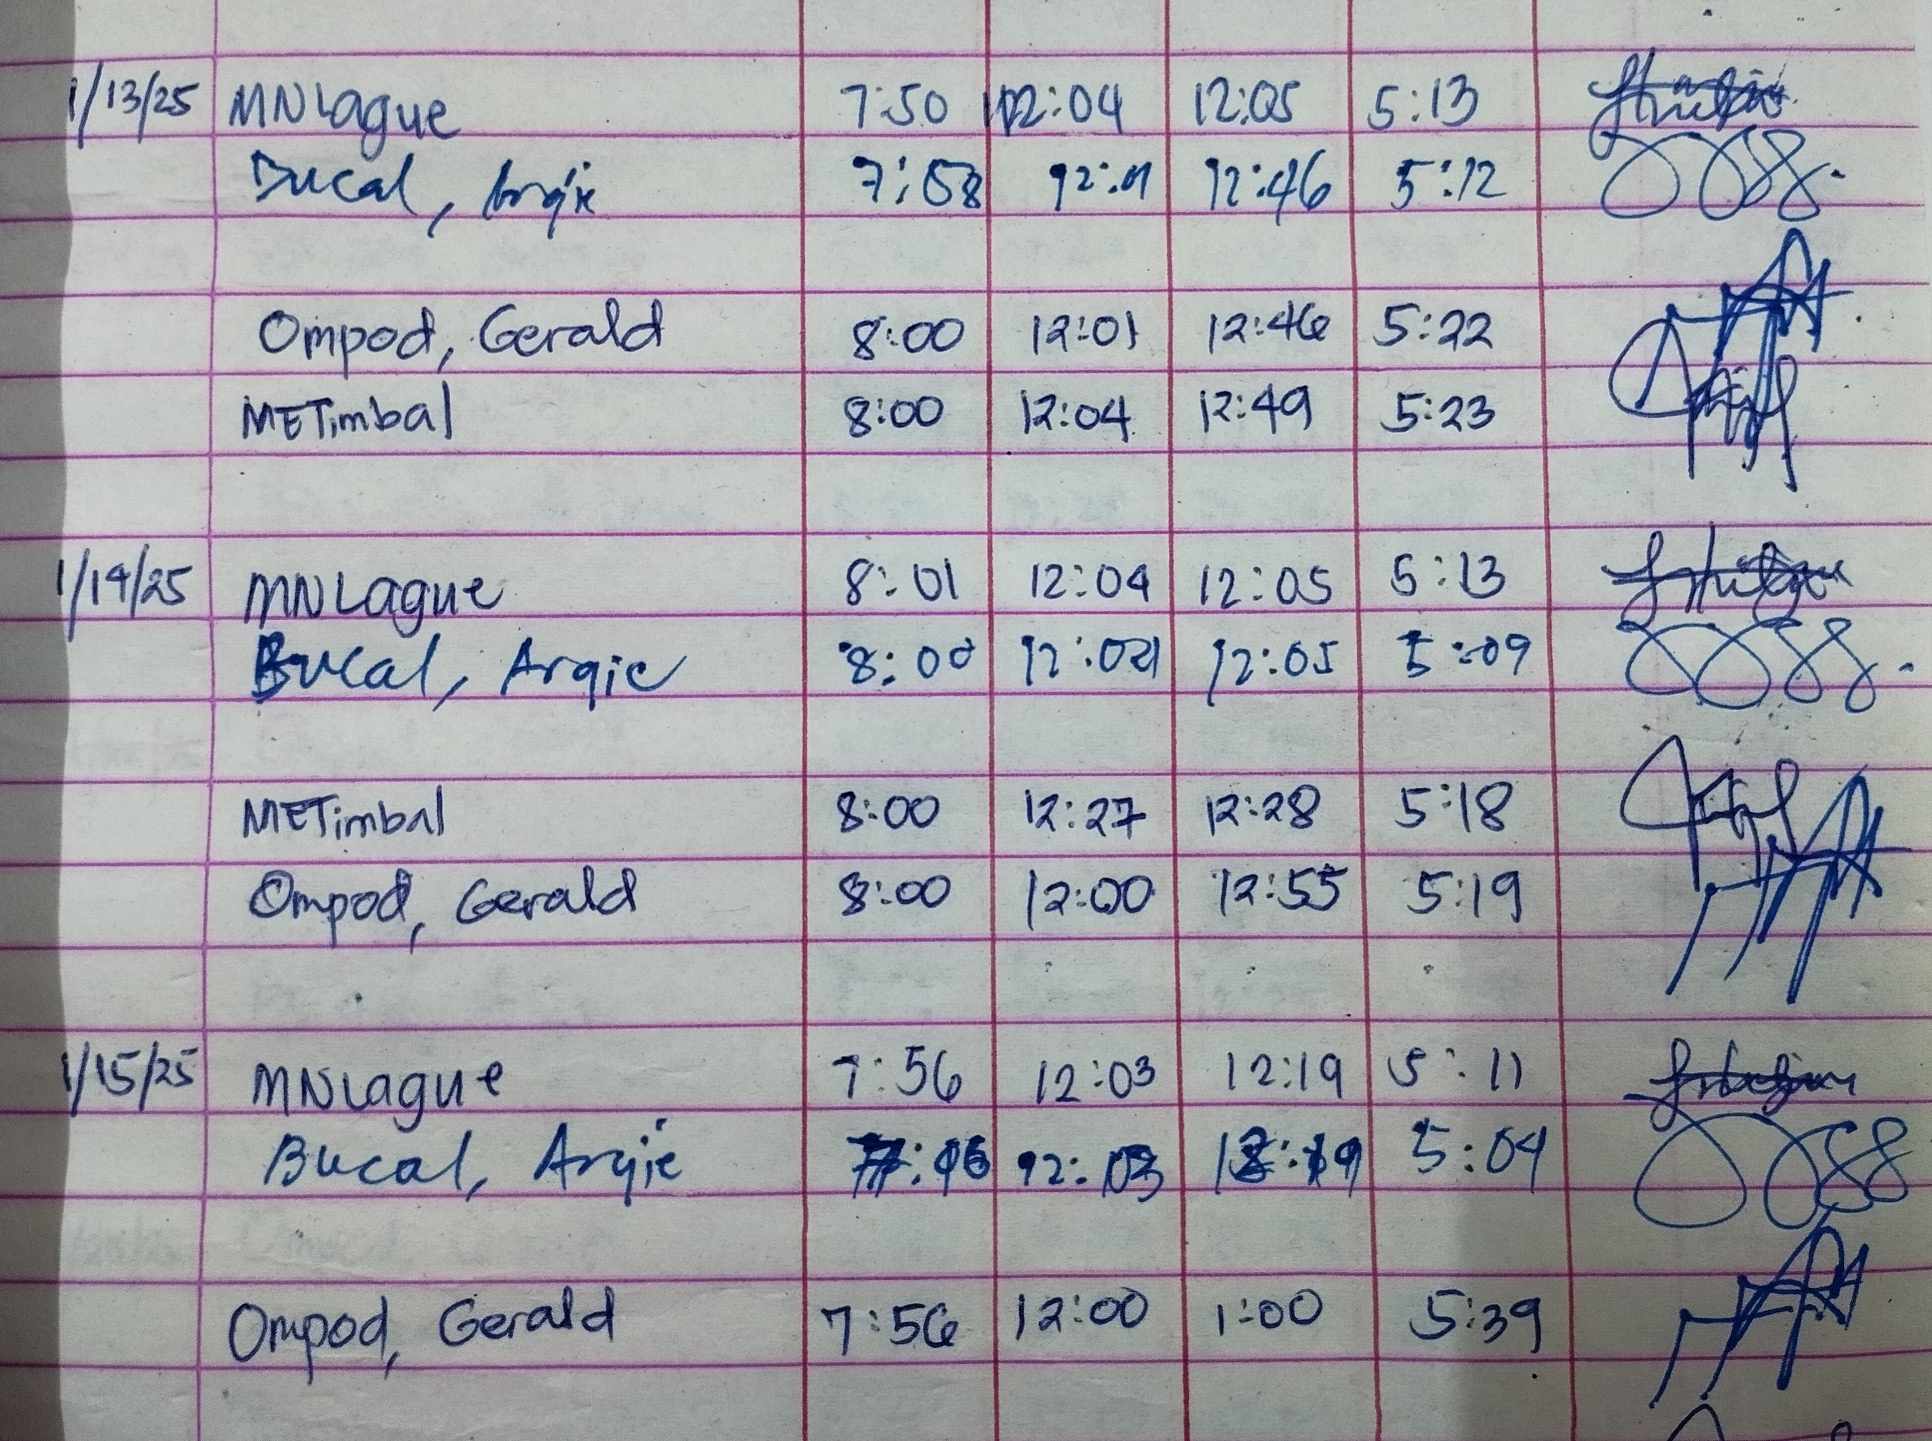 1/13/25 MNLague 7:50 12:04 12:05 5:13
Bucal, Argie 7:58 12:01 12:46 5:12
Ompod, Gerald 8:00 12:01 12:46 5:22
METimbal 8:00 12:04 12:49 5:23
1/14/25 MNLague 8:01 12:04 12:05 5:13
Bucal, Argie 8:00 12:04 12:05 5:09
METimbal 8:00 12:27 12:28 5:18
Ompod, Gerald 8:00 12:00 12:55 5:19
1/15/25 MNLague 7:56 12:03 12:19 5:11
Bucal, Argie 12:03 12:19 5:04
Ompod, Gerald 7:56 12:00 1:00 5:39